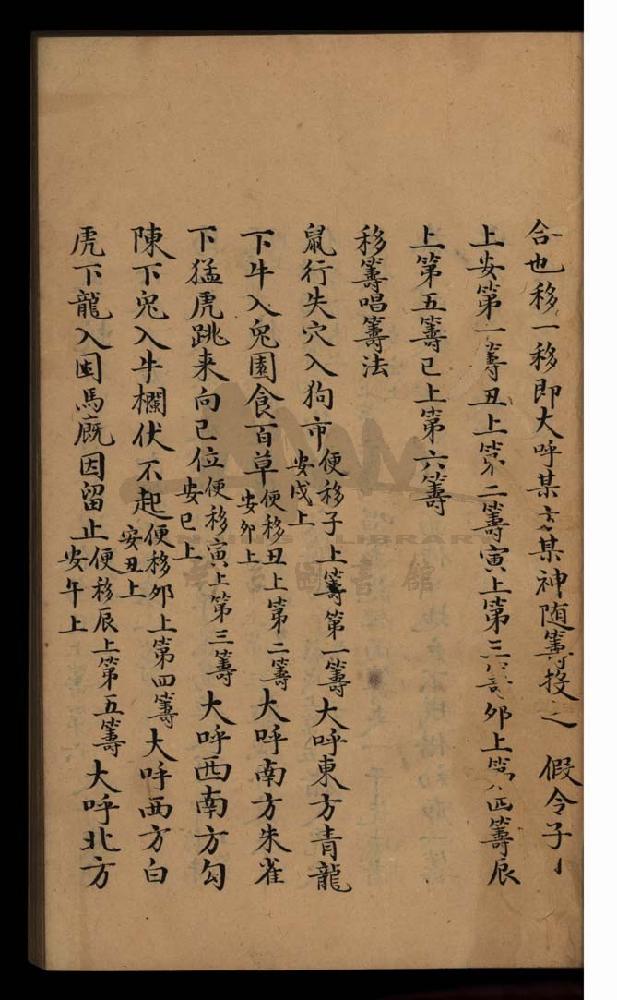 合也移一移即大呼某方某神随籌投之 假令子
上安第一籌丑上第二籌寅上第三籌夘上第四籌辰
上第五籌巳上第六籌
移籌唱籌法
鼠行失穴入狗市便移子上籌第一籌安戌上大呼東方青龍
下牛入兔園食百草便移丑上第二籌安夘上大呼南方朱雀
下猛虎跳来向巳位便移寅上第三籌安巳上大呼西南方勾
陳下兔入牛欄伏不起便移夘上第四籌安丑上大呼西方白
虎下龍入囷馬廐因留止便移辰上第五籌安午上大呼北方
LIBRARY
圖書館